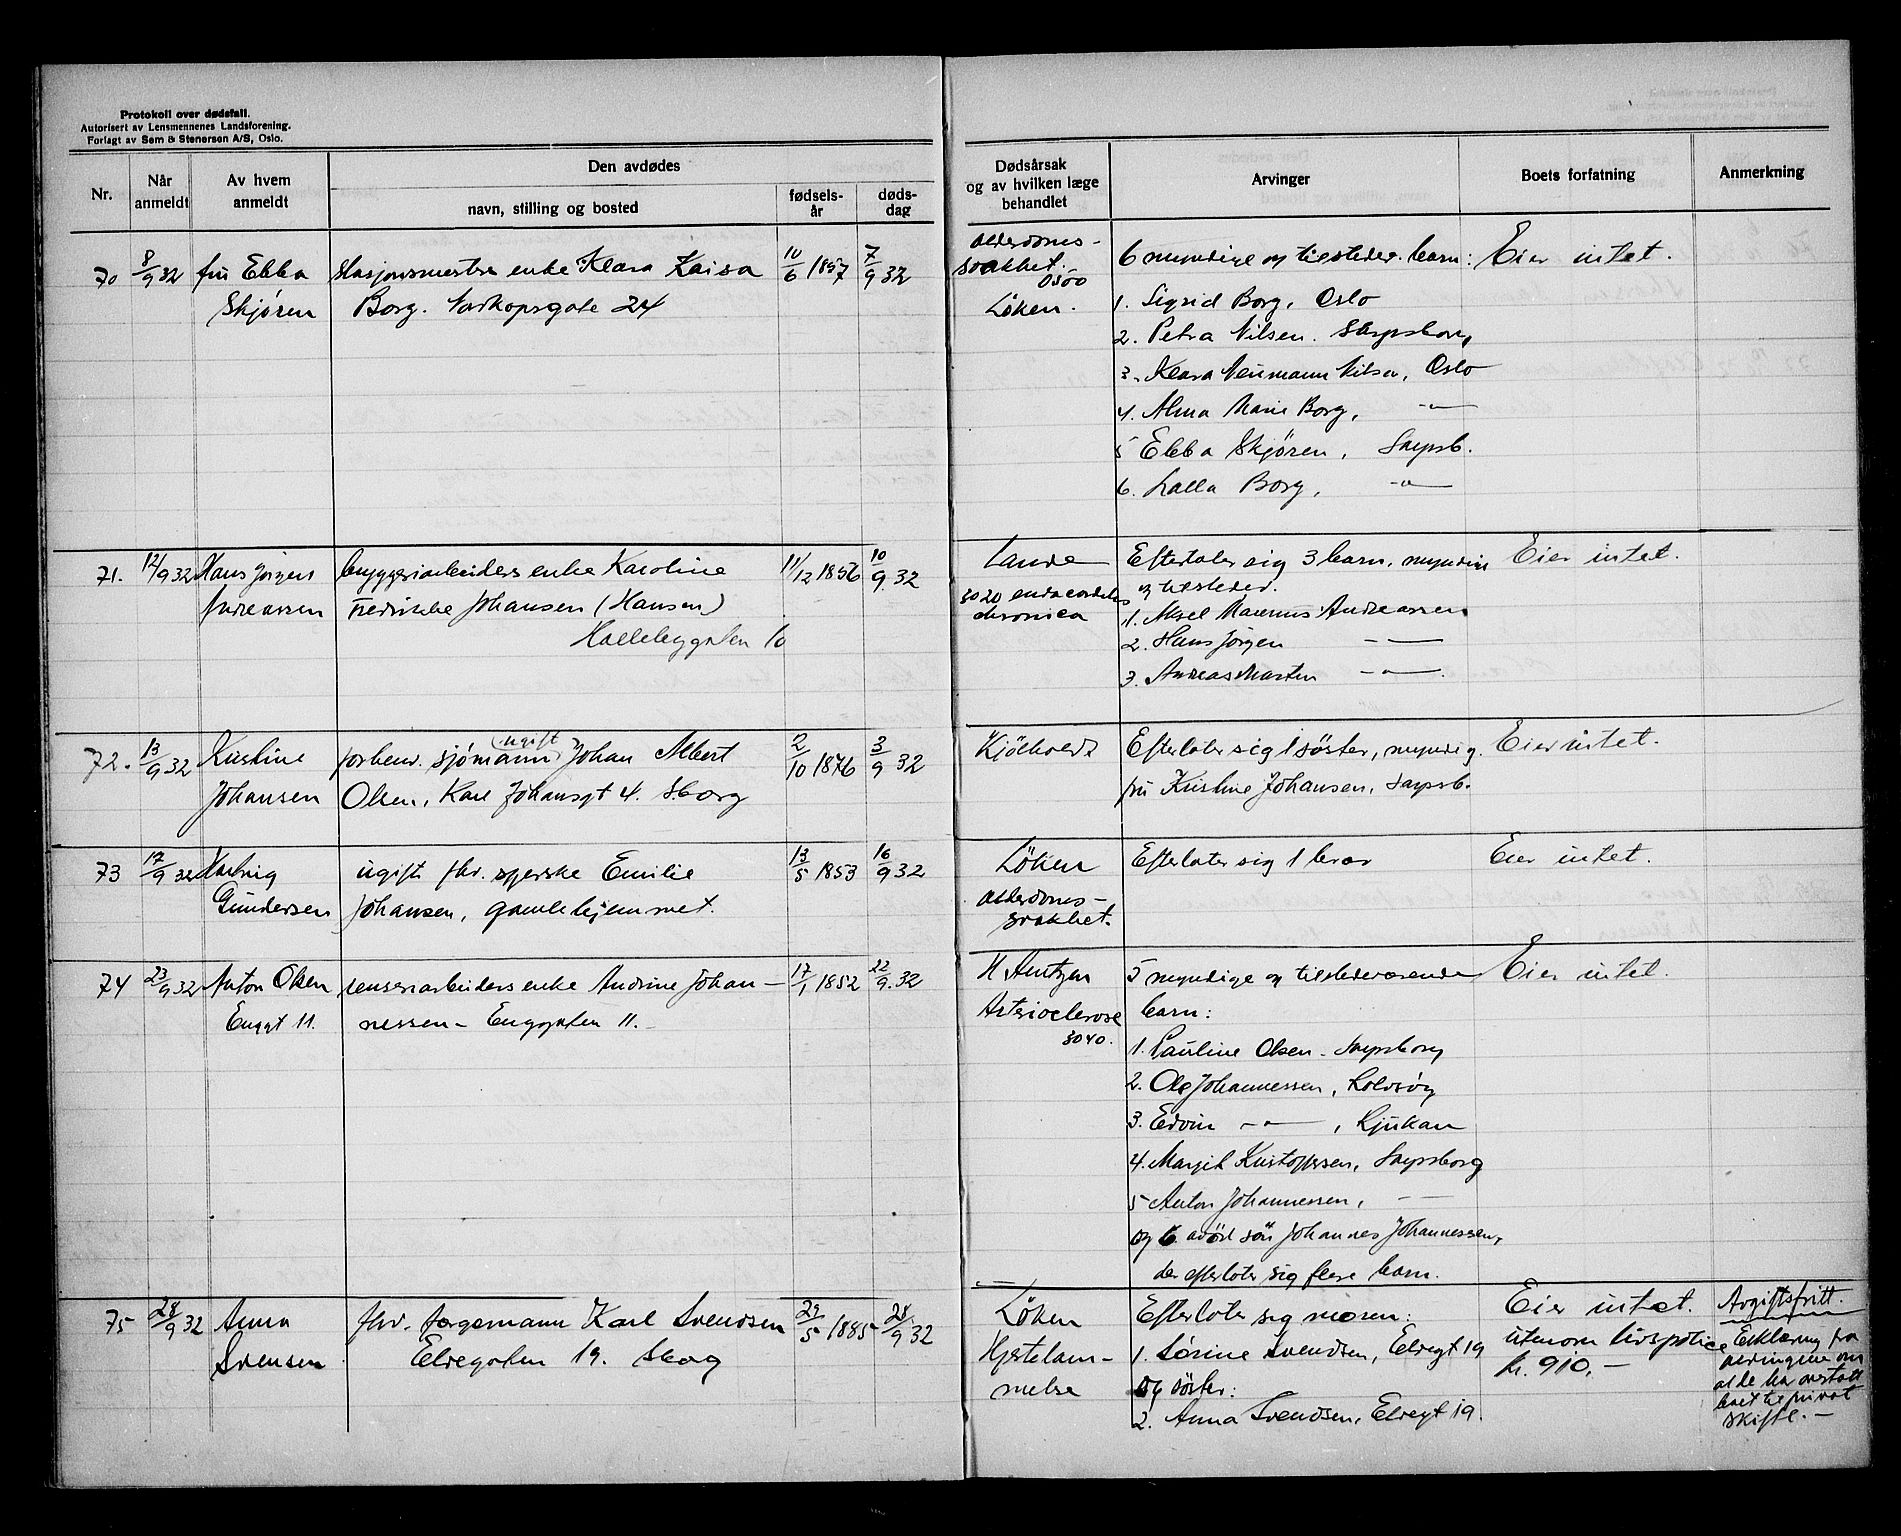 Protokoll over dødsfall.
Autorisert av Lensmennenes Landsforening.
Forlagt av Sem & Stenersen A/S, Oslo.
Nr.
Når anmeldt
Av hvem anmeldt
Den avdødes
navn, stilling og bosted
fødsels-år
døds-dag
Dødsårsak og av hvilken læge behandlet
Arvinger
Boets forfatning
Anmerkning
70 8/9 32 fru Ebba stasjonsmesters enke Klara Kaisa 10/6 1857 7/9 32
Skjøren Borg. gate 24
Alderdoms-
svakhet.
0500
Löken.
6 myndige og tilstedev. barn: Eier intet.
1. Sigrid Borg, Oslo
2. Petra Nilsen. Sarpsborg
3. Klara Neumann Nilsen, Oslo
4. Alma Marie Borg, -"-
5 Ebba Skjören, Sarpsb.
6. Lalla Borg, -"-
71. 12/9 32 Hans Jörgen bryggeriarbeiders enke Karoline 11/12 1856 10/9 32
Andreassen Fredrikke Johansen (Hansen)
10
Lande
3020 endocarditis
chronica
Efterlater sig 3 barn, myndige Eier intet.
og tilstedev.
1. Aksel Andreassen
2. Hans Jörgen -"-
3. Andreas Marten -"-
72. 13/9 32 Kristine forhenv. sjømann (ugift) Johan Albert 2/10 1876 3/9 32
Johansen Olsen, Karl Johansgt 4. Sborg
Efterlater sig 1 söster, myndig. Eier intet.
fru Kristine Johansen, Sarpsb.
73 17/9 32 Hartvig ugift fhv. syerske Emilie 13/5 1853 16/9 32
Gundersen Johansen, gamlehjemmet.
Löken
alderdoms-
svakhet.
Efterlater sig 1 bror Eier intet.
74 23/9 32 Anton Olsen renseriarbeiders enke Andrine Johan- 17/1 1852 22/9 32
Enggt 11. nessen - Enggaten 11.-
H Arntzen
Arteriosclerose
3040.
5 myndige og tilstedeværende Eier intet.
barn:
1. Pauline Olsen - Sarpsborg
2. Ole Johannessen,
3. Edvin -"-, Rjukan
4. Margit Kristoffersen, Sarpsborg
5 Anton Johannessen, -"-
og 6. avdöd sön Johannes Johannessen,
der efterlater sig flere barn.
75 28/9 32 Anna fhv. Karl Svendsen 29/5 1885 28/9 32
Svensen Elvegaten 19. Sborg
Löken
Hjertelam-
melse
Efterlater sig moren:
1. Lovine Svendsen, Elvegt 19
og söster:
2. Anna Svendsen, Elvegt 19.
Eier intet.
utenom livspolice
kr. 910,-
Avgiftsfritt.
Erklæring fra
arvingene om
at de har overtatt
boet til privat
skifte.-